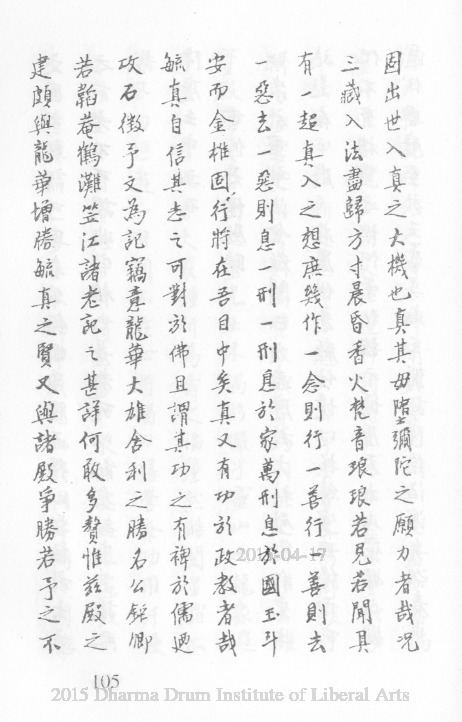 固出世入真之大機也真其毋墮彌陀之願力者哉況
三藏入法盡歸方寸晨昏香火梵音琅琅若見若聞其
有一超真入之想庶幾作一念則行一善行一善則去
一惡去一惡則息一刑一刑息於家萬刑息於國玉斗
安而金椎固行將在吾目中矣真又有功於政教者哉
毓真自信其志之可對於佛且謂其功之有裨於儒迺
攻石徵予文為記竊意龍華大雄舍利之勝名公鉅卿
若韜菴鶴灘笠江諸老記之甚詳何敢多贅惟茲殿之
建頗與龍華增勝毓真之賢又與諸殿爭勝若予之不
2015-04-17
105
2015 Dharma Drum Institute of Liberal Arts